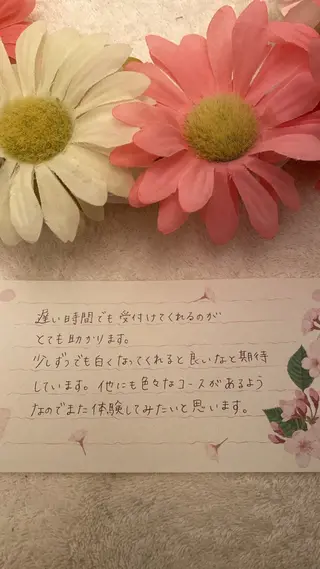 遅い時間でも受付けてくれるのが
とても助かります。
少しずつでも白くなってくれると良いなと期待
しています。他にも色々なコースがあるよう
なのでまた体験してみたいと思います。